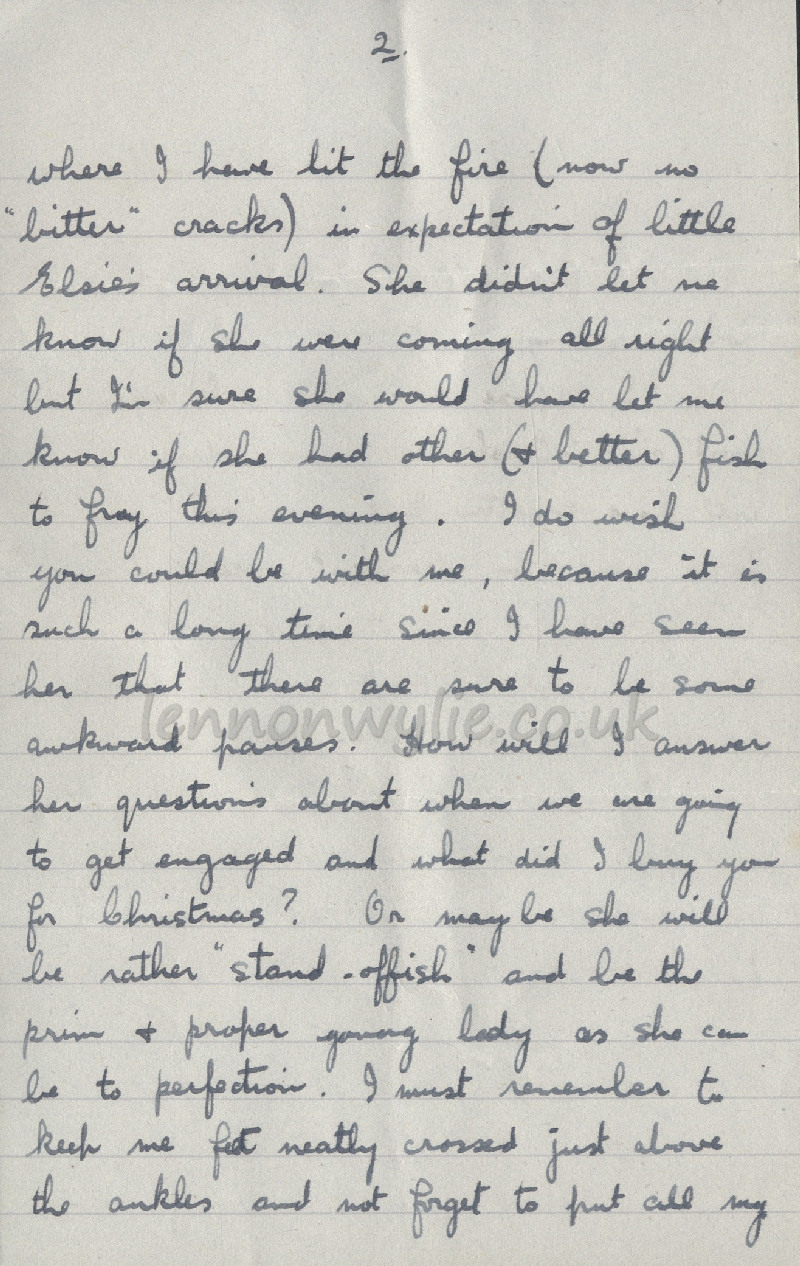 2.
where I have lit the fire (now no
"bitter" cracks) in expectation of little
Elsie's arrival. She didn't let me
know if she were coming all right
but I'm sure she would have let me
know if she had other (& better) fish
to fray this evening. I do wish
you could be with me, because it is
such a long time since I have seen
her that there are sure to be some
lennonwylie.co.uk
awkward pauses. How will I answer
her questions about when we are going
to get engaged and what did I buy you
for Christmas? Or maybe she will
be rather "stand-offish" and be the
prim & proper young lady as she can
be to perfection. I must remember to
keep me feet neatly crossed just above
the ankles and not forget to put all my